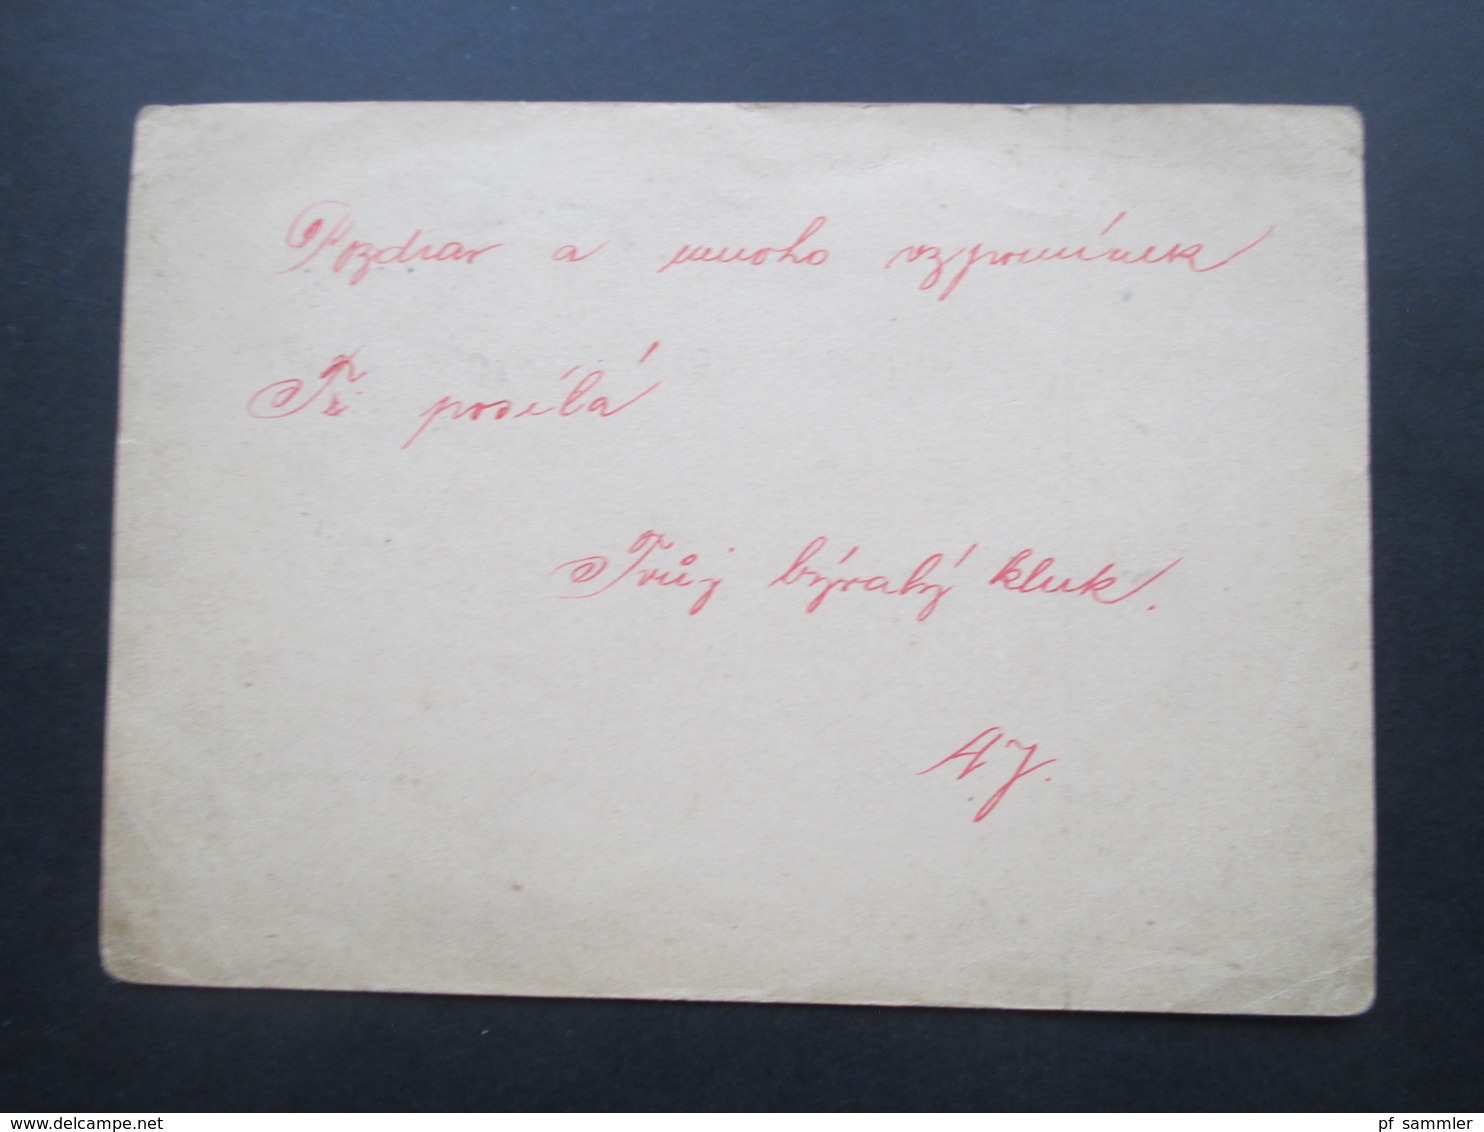 Pozdrav a mnoho vzpomínek
Ti posílá
Tvůj bývalý kluk.
AJ.
www.delcampe.net
pf_sammler